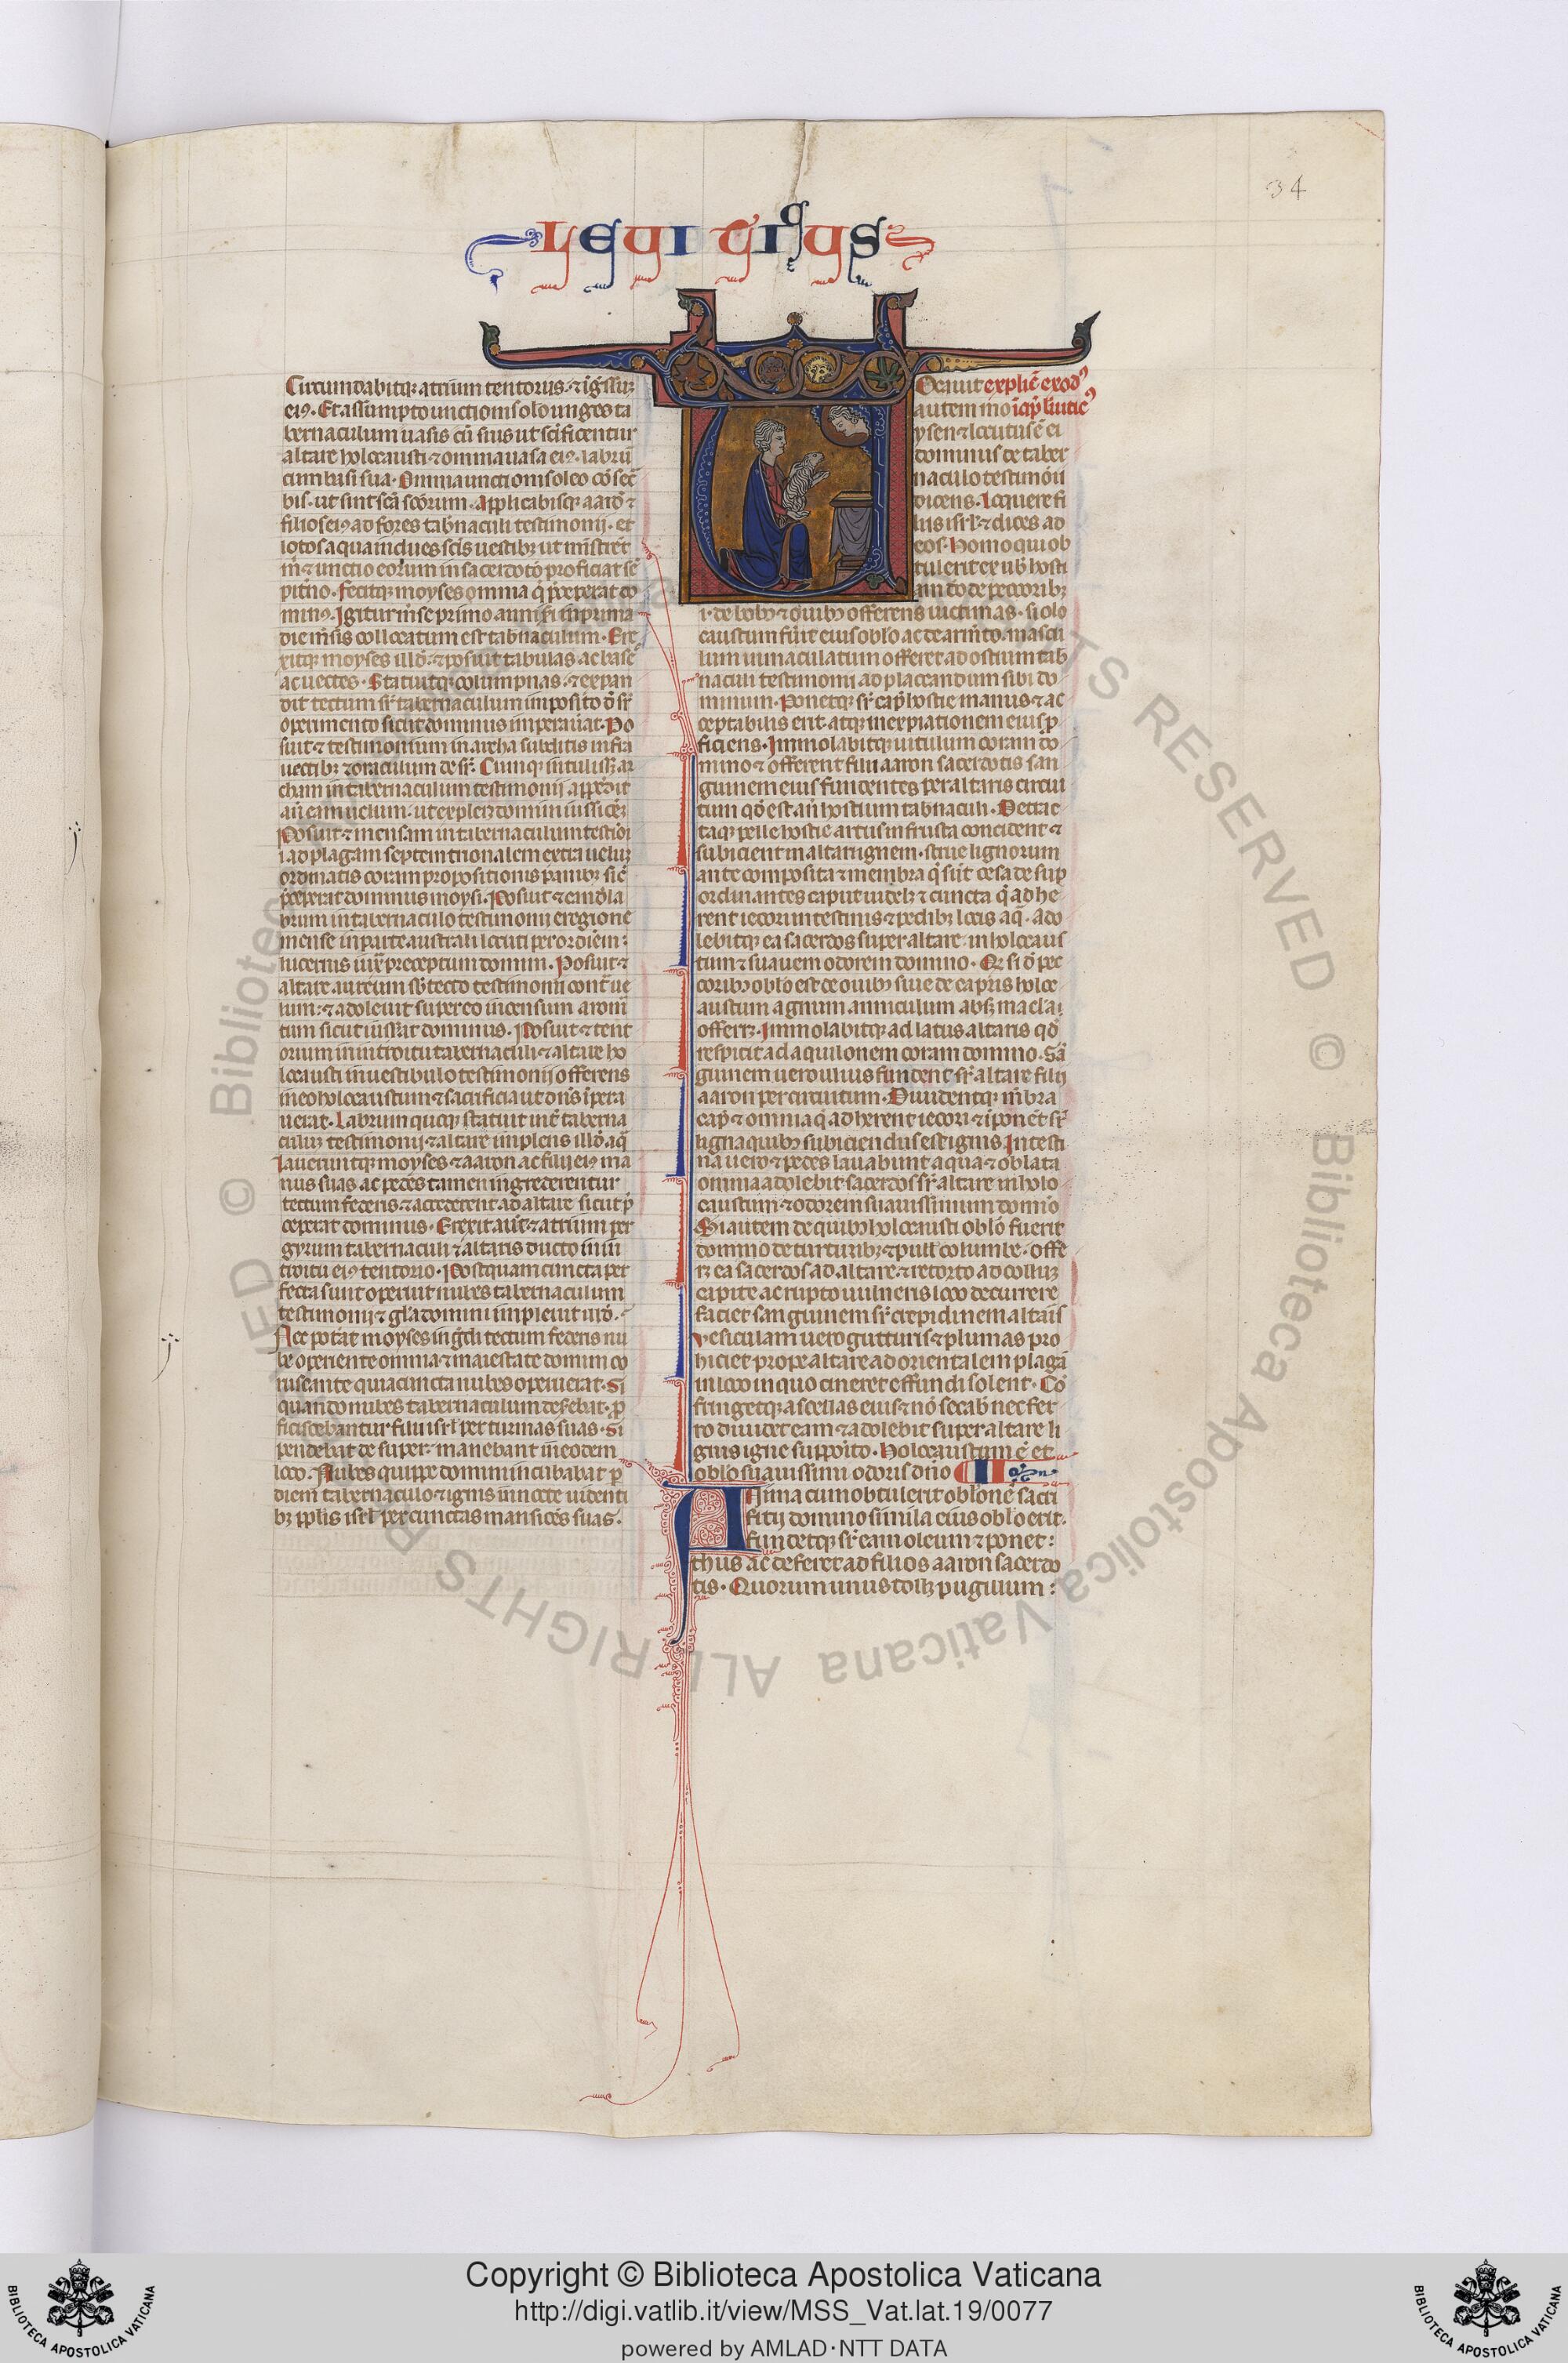 34
LEVITICUS
Circundabitq; atrium tentoriis. ⁊ ig̃ssuȝ
ei⁹. Et assumpto unctionis oleo unges ta
bernaculum uasis cũ suis ut sc̃ificentur
altare holocausti ⁊ omnia uasa ei⁹. labrũ
cum basi sua. Omnia unctionis oleo cõsec̃
bis. ut sint sc̃a sc̃orum. Applicabisq; aarõ ⁊
filios ei⁹ ad fores tab̃naculi testimonij. et
lotos aqua indues sc̃is uestib; ut minist̃rẽt
m̃ ⁊ unctio eorum in sacerdotõ proficiat sẽ
pit̃no. Fecitq; moyses omnia q̃ p̃ceperat do
min⁹. Igitur m̃se primo anni scd̃i in prima
die m̃sis collocatum est tab̃naculum. Ere
xitq; moyses illď. ⁊ posuit tabulas ac bases
ac uectes. Statuitq; columpnas. ⁊ expan
dit tectum sr̃ tabernaculum imposito d̃ sr̃
operimento sicut dominus imperauat. Po
suit ⁊ testimonium in archa subditis infra
uectib; ⁊ oraculum desr̃. Cumq; intulisset ar
cham in tabernaculum testimonij appẽdit
añ eam uelum. ut expleret domini iussioẽȝ
Posuit ⁊ mensam in tabernaculum testiõi
i ad plagam septemtrionalem extra ueluȝ
ordinatis coram propositionis panib; sic̃
p̃ceperat dominus moysi. Posuit ⁊ candela
brum in tabernaculo testimonij e regione
mense in parte australi locati per ordinem:
lucernis iux̃ preceptum domini. Posuit ⁊
altare aureum sb̃ tecto testimonij cont̃ ue
lum: ⁊ adoleuit super eo incensum aromi
tum sicut iusserat dominus. Posuit ⁊ tent
orium in introitu tabernaculi ⁊ altare ho
locausti in uestibulo testimonij offerens
in eo holocaustum ⁊ sacrificia ut dñs ĩpera
uerat. Labrum quoq; statuit int̃ taberna
culuȝ testimonij ⁊ altare implens illď aq̃
Lauerũtq; moyses ⁊ aaron ac filij ei⁹ ma
nus suas ac pedes tamen ingrederentur
tectum federis ⁊ accederent ad altare sicut p̃
ceperat dominus. Erexit aut̃ ⁊ atrium per
gyrum tabernaculi ⁊ altaris ducto in in
troitu ei⁹ tentorio. Postquam cuncta per
fecta sunt operuit nubes tabernaculum
testimonij ⁊ gl̃a domini impleuit illď.
Nec potat̃ moyses ingr̃di tectum federis nu
be operiente omnia ⁊ maiestate domini co
ruscante quia cuncta nubes operuerat. Si
quando nubes tabernaculum deserebat. p̃
ficiscebantur filij isrl̃ per turmas suas. Si
pendebat desuper manebant in eodem
loco. Nubes quippe domini incubabat p̃
diem tabernaculo ⁊ ignis in nocte uidenti
b; ppl̃is isrl̃ per cunctas mansiões suas.
Ocauit explic̃ exod⁹
autem mo icip̃ leuitic⁹
ysen ⁊ locutus ẽ ei
dominus de taber
naculo testimonij
dicens. Loquere fi
liis isrl̃ ⁊ dices ad
eos. Homo qui ob
tulerit ex uob̃ hosti
am dõ de pecorib;
i. de bob; ⁊ ouib; offerens uictimas. si olo
caustum fũit eius obl̃o ac de arm̃to. mascu
lum immaculatum offeret ad ostium tab̃
naculi testimonij ad placandum sibi do
minum. Ponetq; sr̃ cap̃ hostie manus ⁊ ac
ceptabilis erit. atq; in expiationem eius p̃
ficiens. Immolabitq; uitulum coram do
mino ⁊ offerent filij aaron sacerdotis san
guinem eius fundentes per altaris circui
tum qđ est añ hostium tab̃naculi. Detrac
taq; pelle hostie artus in frusta concident ⁊
subicient in altari ignem. strue lignorum
ante composita ⁊ membra q̃ sũt cesa desup̃
ordinantes caput uidel; ⁊ cuncta q̃ adhe
rent iecori intestinis ⁊ pedib; lotis aq̃. Ado
lebitq; ea sacerdos super altare in holocaus
tum ⁊ suauem odorem domino. Q̃ si d̃ pec
corib; obl̃o est de ouib; siue de capris holoc
austum agnum anniculum absq; macl̃a
offerȝ. Immolabitq; ad latus altaris qđ
respicit ad aquilonem coram domino. Sã
guinem uero illius fundent sr̃ altare filij
aaron per circuitum. Diuidentq; m̃bra
cap̃ ⁊ omnia q̃ adherent iecori ⁊ ĩponẽt sr̃
ligna quib; subiciendus est ignis Intesti
na uero ⁊ pedes lauabunt aqua ⁊ oblata
omnia adolebit sacerdos sr̃ altare in holo
caustum ⁊ odorem suauissimum domiõ
Si autem de auib; holocausti obl̃o fuerit
domino de turturib; ⁊ pull̃ columbe. offe
rȝ ea sacerdos ad altare. ⁊ retorto ad colluȝ
capite ac rupto uulneris loco decurrere
faciet sanguinem sr̃ crepidinem altaris
Vesiculam uero gutturis ⁊ plumas pro
hiciet prope altare ad orientalem plagã
in loco in quo cineres effundi solent. Cõ
fringetq; ascellas eius ⁊ nõ secab̃ nec fer
ro diuidet eam ⁊ adolebit super altare li
gnis igne supposito. Holocaustum ẽ et
obl̃o suauissimi odoris dño II
Anima cum obtulerit obl̃onẽ sacri
ficij domino simila eius obl̃o erit.
fundetq; sr̃ eam oleum ⁊ ponet:
thus ac deferet ad filios aaron sacerdo
tis. Quorum unus toll; pugillum:
© Biblioteca Apostolica Vaticana ALL RIGHTS RESERVED © Biblioteca Apostolica Vaticana ALL RIGHTS RESERVED
Copyright © Biblioteca Apostolica Vaticana
http://digi.vatlib.it/view/MSS_Vat.lat.19/0077
powered by AMLAD·NTT DATA
BIBLIOTECA APOSTOLICA VATICANA
BIBLIOTECA APOSTOLICA VATICANA